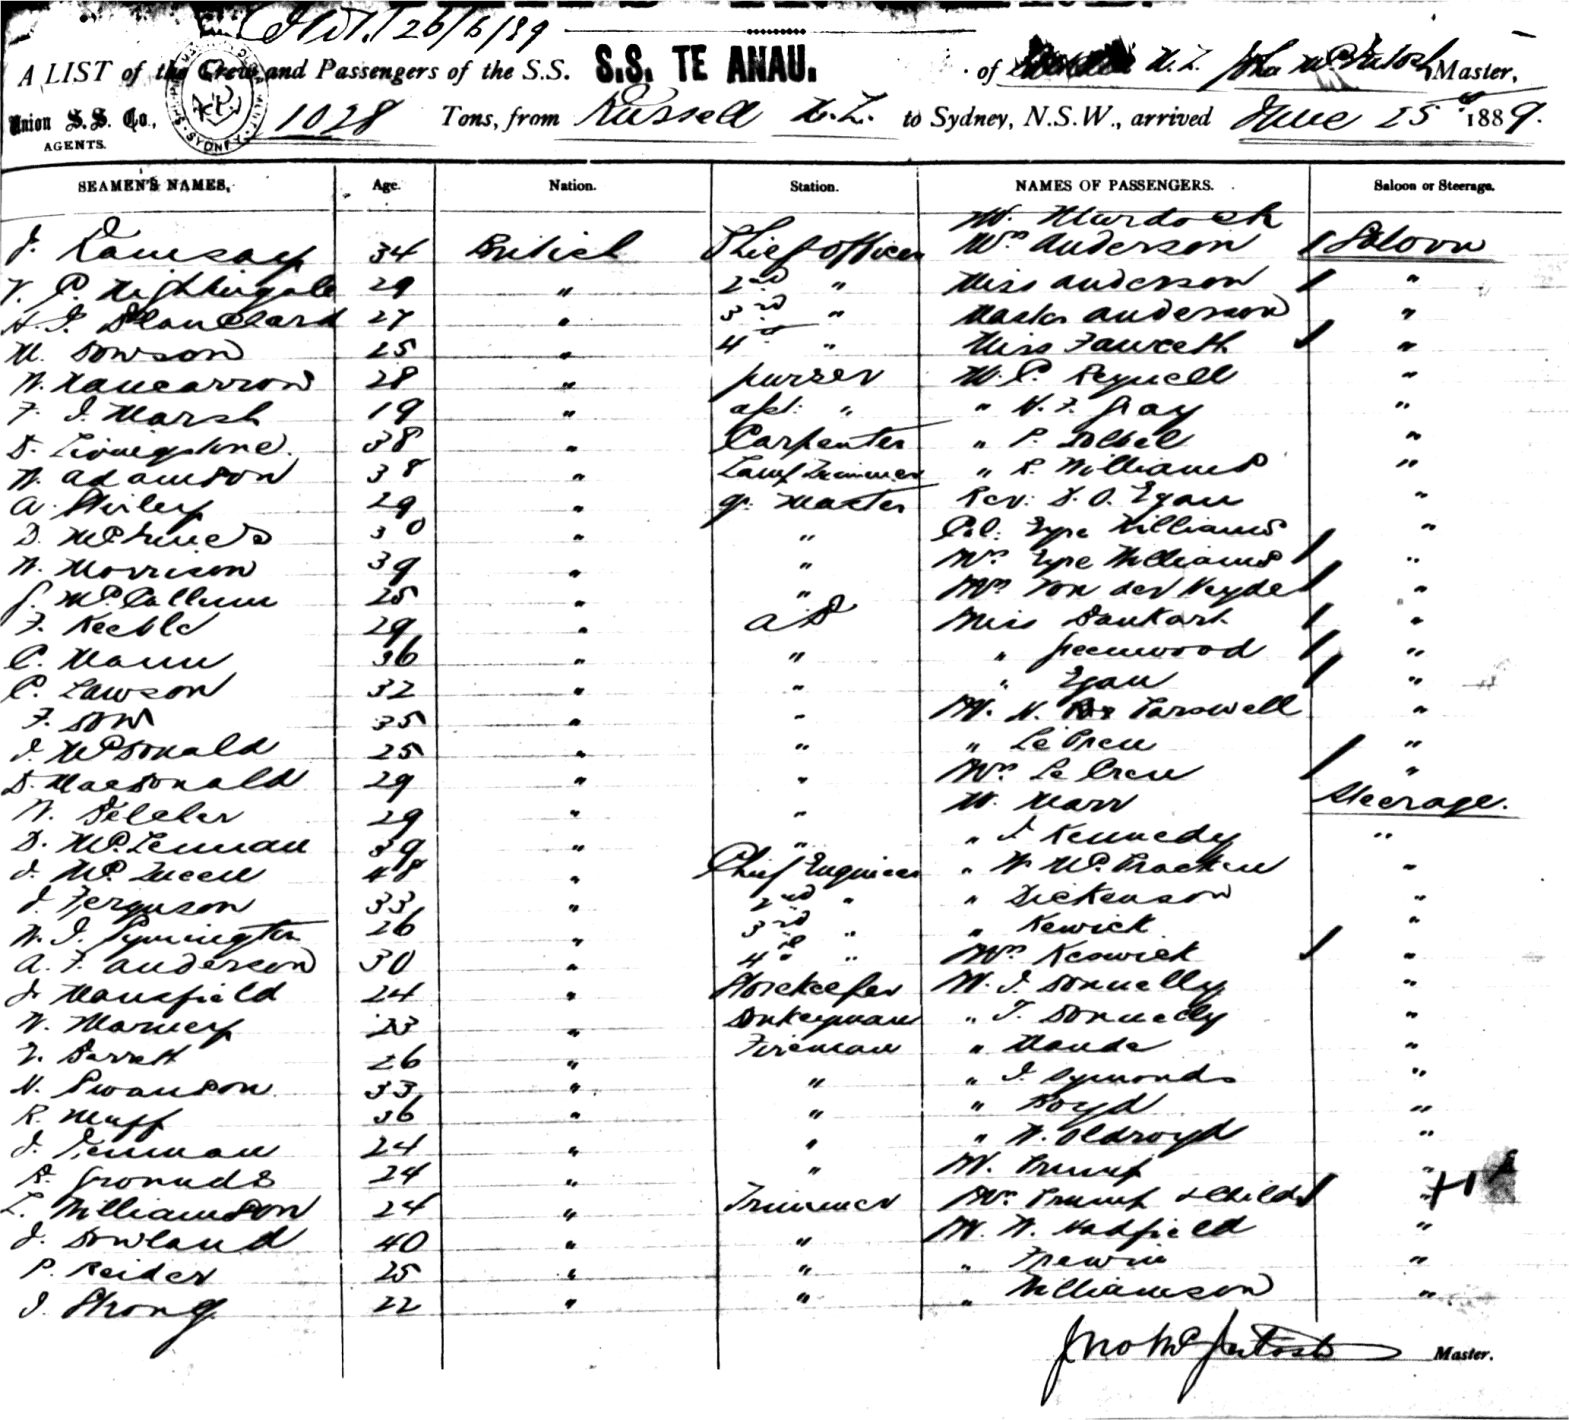 26/6/89
A LIST of the Crew and Passengers of the S.S. S.S. TE ANAU. of N.Z. John McIntosh Master,
Union S.S. Co., 1028 Tons, from Russell N.Z. to Sydney, N.S.W., arrived June 25th 1889.
AGENTS.
SEAMEN'S NAMES, Age. Nation. Station. NAMES OF PASSENGERS. Saloon or Steerage.
Mr. Murdoch
J. Ramsay 34 British Chief Officer Mrs Anderson 1 Saloon
V. P. Nightingale 29 " 2nd " Miss Anderson 1 "
H. J. Blanchard 27 " 3rd " Master Anderson "
M. Dowson 25 " 4th " Miss Fawcett 1 "
W. Nancarrow 28 " purser Mr. C. Reynell "
F. J. Marsh 19 " asst: " " H. F. Gray "
D. Livingstone. 38 " Carpenter " P. "
W. Adamson 38 " Lamp Trimmer " R. Williams "
A. Shirley 29 " qr. Master Rev: D. O. Egan "
D. McInnes 30 " " Col: Eyre Williams "
W. Morrison 39 " " Mrs Eyre Williams 1 "
J. McCallum 25 " " Mrs Von der Heyde 1 "
F. Keeble 29 " AB Miss Dankart 1 "
C. Mann 36 " " " Greenwood 1 "
C. Lawson 32 " " " Egan 1 "
F. Dow 35 " " Mr. H. Farewell "
J. McDonald 25 " " " Le Preu "
D. MacDonald 29 " " Mrs Le Preu 1 "
W. 29 " " Mr. Marr Steerage.
D. McLennan 39 " " " J. Kennedy "
J. McQueen 48 " Chief Engineer " W. McCracken "
J. Ferguson 33 " 2nd " " Dickenson "
W. J. Symington 26 " 3rd " " Keswick "
A. F. Anderson 30 " 4th " Mrs Keswick 1 "
J. Mansfield 24 " Storekeeper Mr. J. Donnelly "
W. Marney 23 " Donkeyman " T. Donnelly "
T. Barrett 26 " Fireman " Maude "
N. Swanson 33 " " " J. Symonds "
R. Muff 36 " " " Boyd "
J. Tennan 24 " " " W. Oldroyd "
R. Grounds 24 " " Mr. Trump "
L. Williamson 24 " Trimmer Mrs Trump & Child 1 " +1
J. Dowland 40 " " Mr. W. Hadfield "
P. Reider 25 " " " Trewin "
J. Strong 22 " " " Williamson "
Jno McIntosh Master.